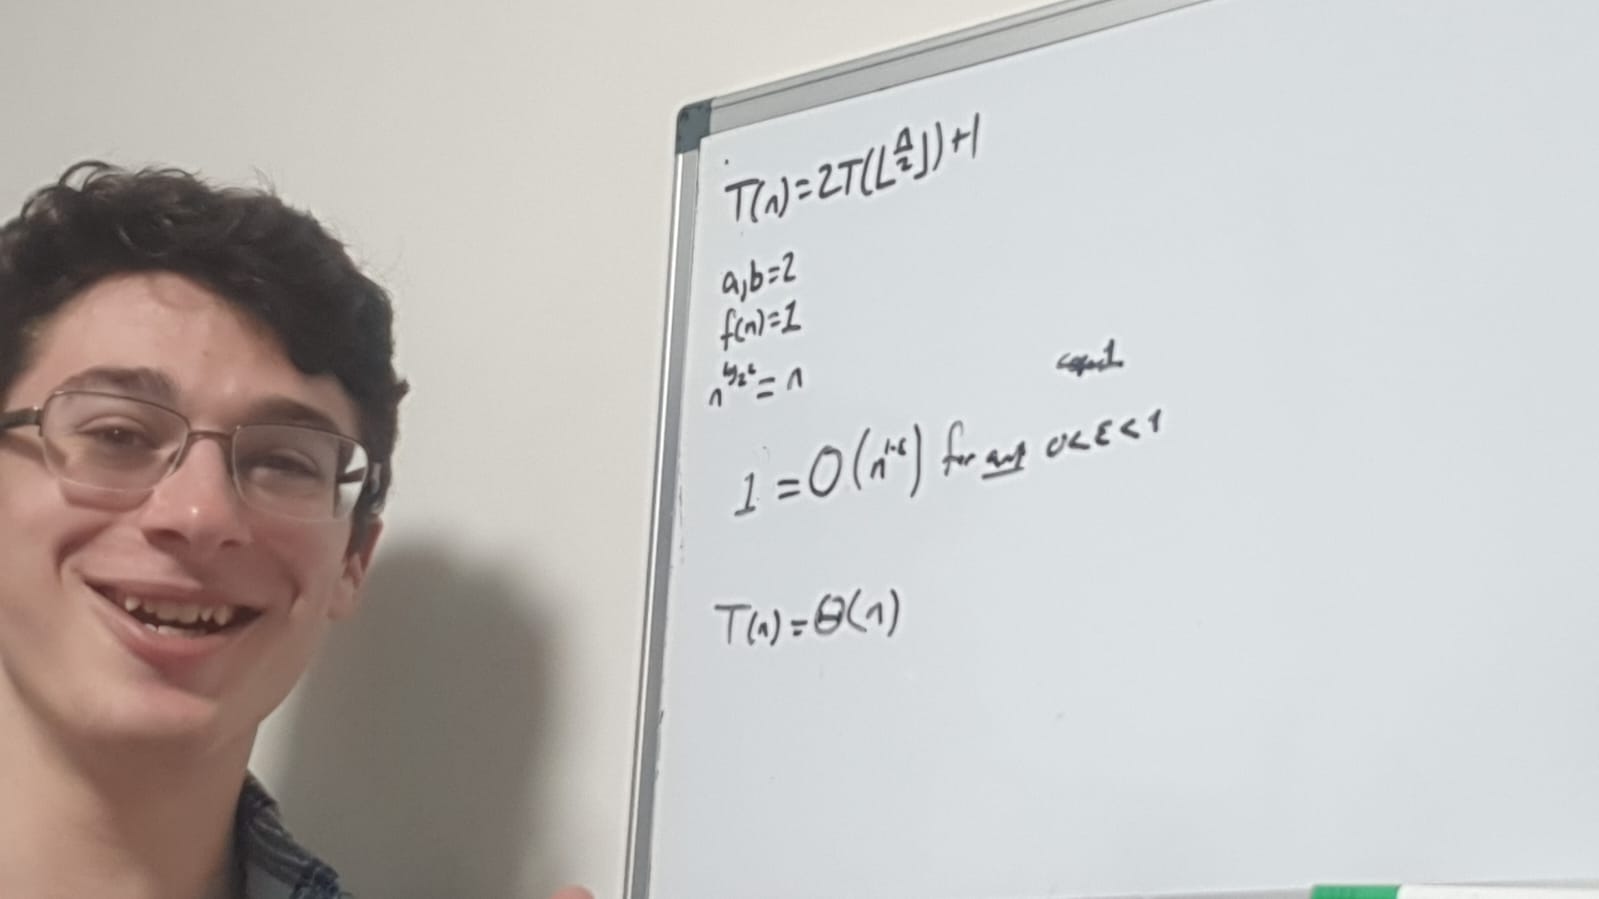 T(n)=2T(⌊n/2⌋)+1
a,b=2
f(n)=1
n^log₂2 = n
1 = O(n^1-ε) for any 0<ε<1
T(n)=Θ(n)